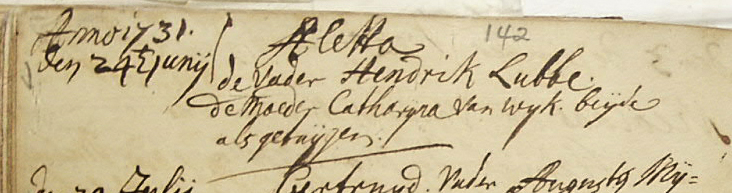 Anno 1731. Aletta 142
den 24 Junij de Vader Hendrik Lubbe.
de Moeder Catharyna Van Wyk. beyde
als getuijgen.
Julij Geertruyd. Vader Augusts Mij=